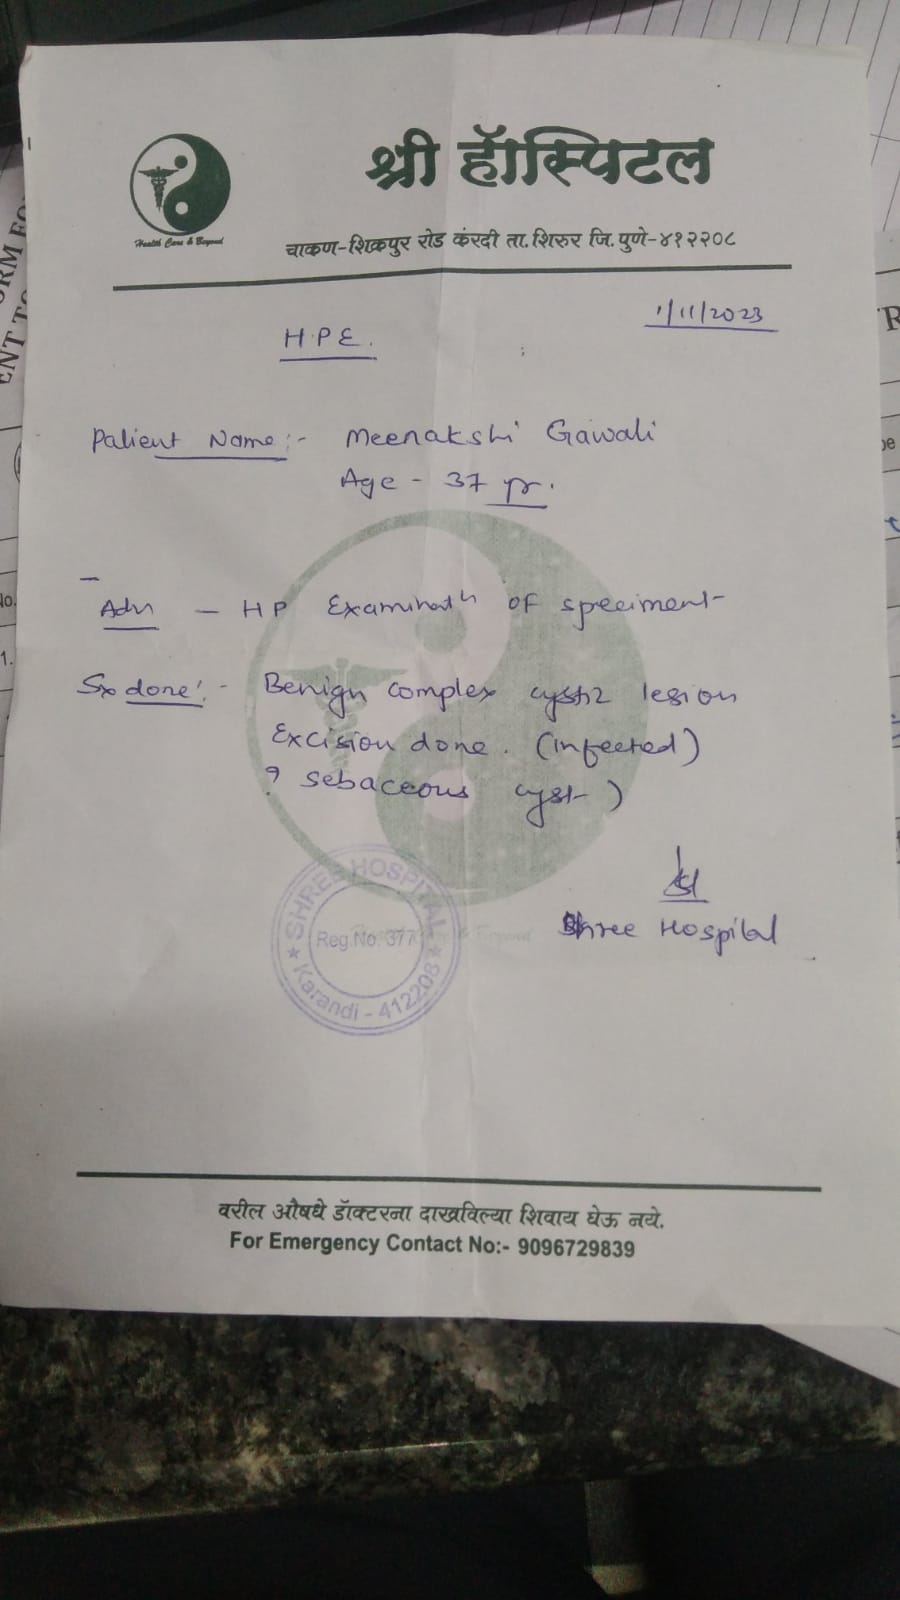 श्री हॅास्पिटल
Health Care & Beyond
चाकण-शिक्रपुर रोड करंदी ता. शिरुर जि. पुणे-४१२२०८
1/11/2023
H.P.E.
Patient Name:- Meenakshi Gawali
Age - 37 yr.
Adv - HP Examinatn of speciment
Sx done:- Benign complex cystic lesion
Excision done. (infected)
? sebaceous cyst)
Shree Hospital
SHREE HOSPITAL
Reg.No. 377
Karandi - 412208
वरील औषधे डॅाक्टरना दाखविल्या शिवाय घेऊ नये.
For Emergency Contact No:- 9096729839